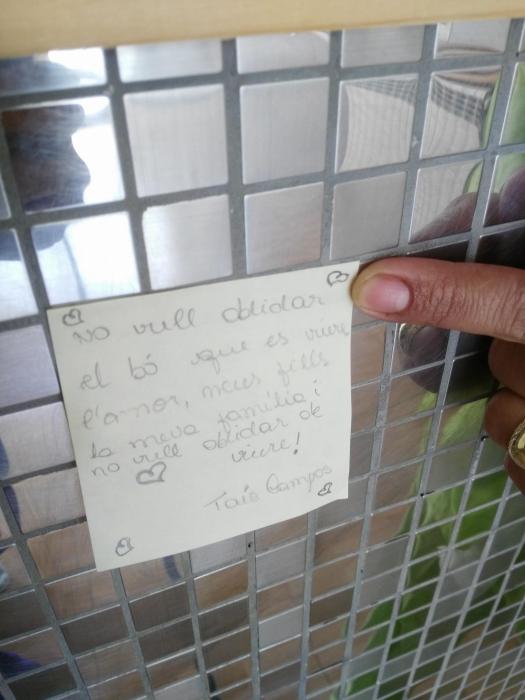 No vull oblidar
el bó que es viure
l'amor, meus fills
la meva família i
no vull oblidar de
viure!
Tais Campos